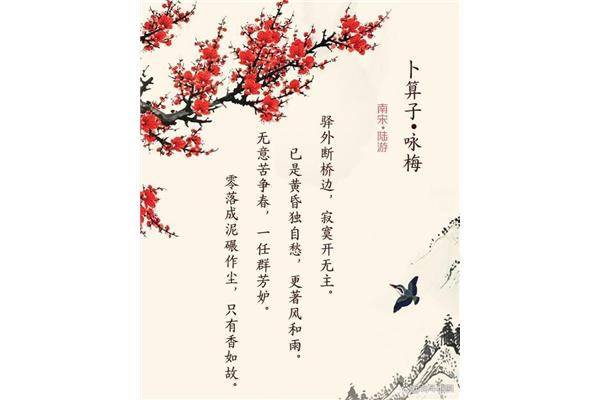 卜算子·咏梅
南宋·陆游
驿外断桥边，寂寞开无主。
已是黄昏独自愁，更著风和雨。
无意苦争春，一任群芳妒。
零落成泥碾作尘，只有香如故。